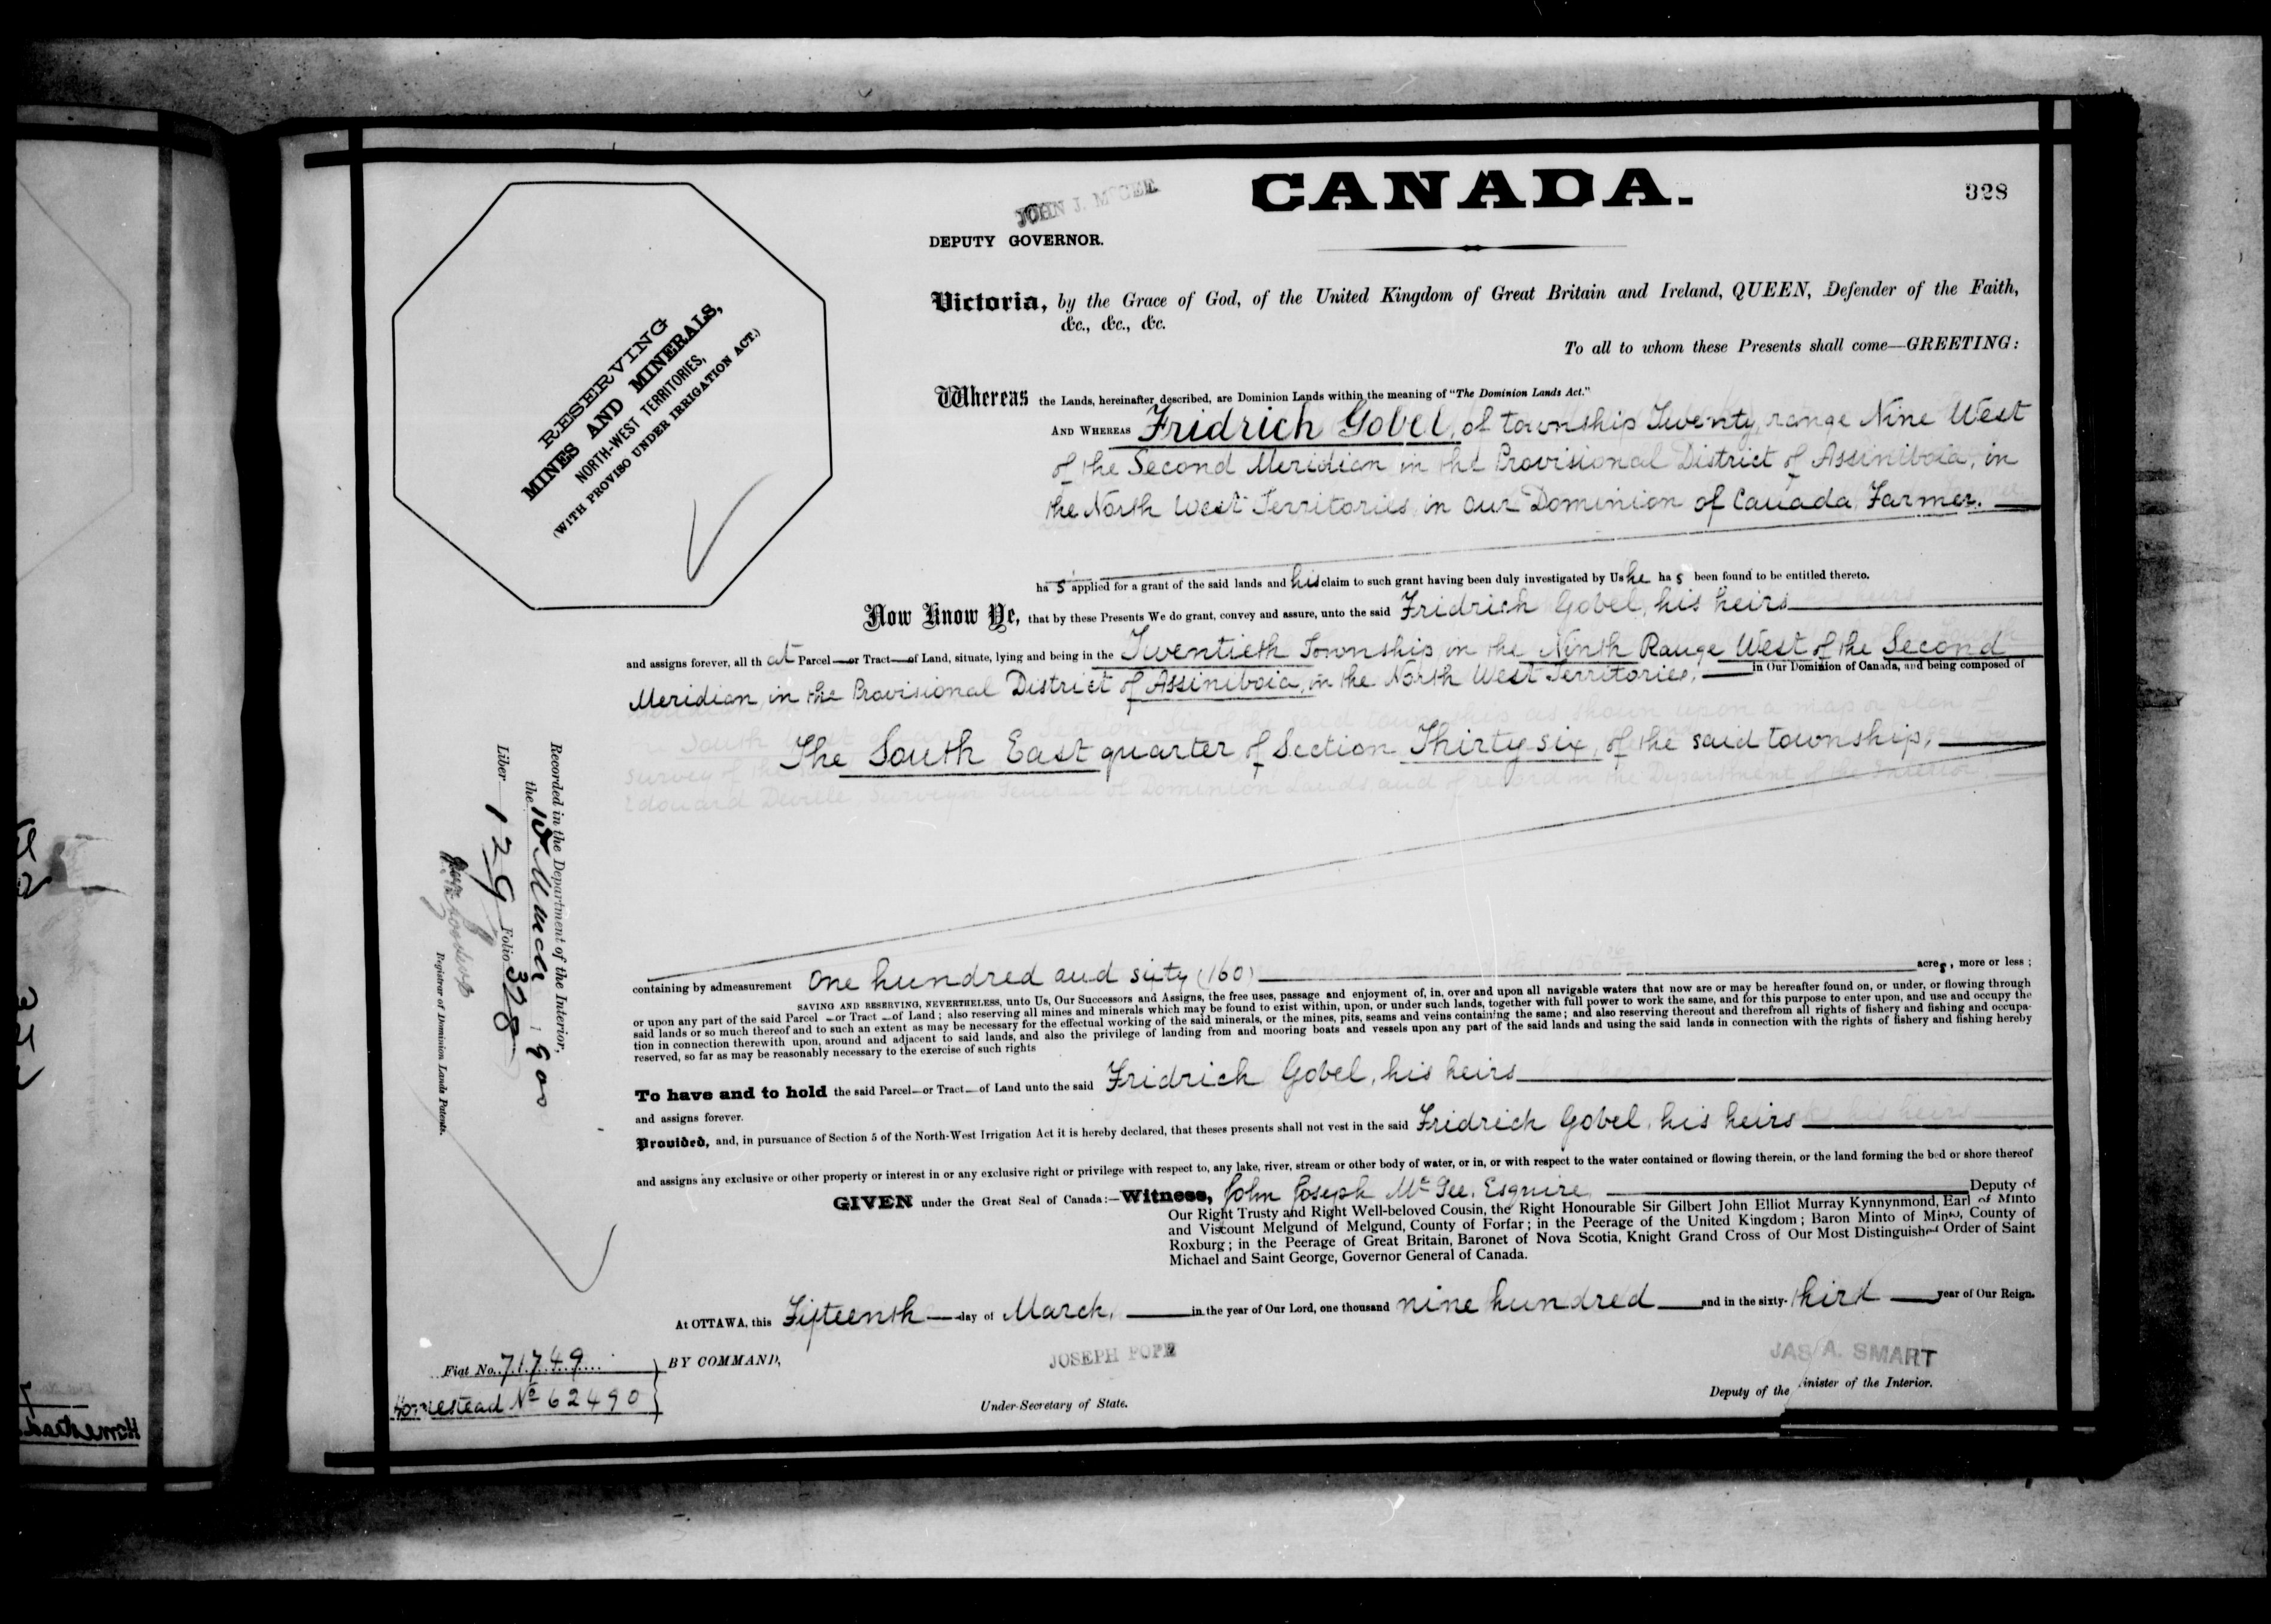 CANADA.
328
JOHN J. McGEE
DEPUTY GOVERNOR.
RESERVING
MINES AND MINERALS,
NORTH-WEST TERRITORIES,
(WITH PROVISO UNDER IRRIGATION ACT.)
Victoria, by the Grace of God, of the United Kingdom of Great Britain and Ireland, QUEEN, Defender of the Faith,
&c., &c., &c.
To all to whom these Presents shall come—GREETING:
Whereas the Lands, hereinafter described, are Dominion Lands within the meaning of "The Dominion Lands Act."
AND WHEREAS Fridrich Gobel, of township Twenty, range Nine West
of the Second Meridian in the Provisional District of Assiniboia, in
the North West Territories, in Our Dominion of Canada, Farmer.
has applied for a grant of the said lands and his claim to such grant having been duly investigated by Us he has been found to be entitled thereto.
Now Know Ye, that by these Presents We do grant, convey and assure, unto the said Fridrich Gobel, his heirs
and assigns forever, all that Parcel—or Tract—of Land, situate, lying and being in the Twentieth Township in the Ninth Range West of the Second
Meridian in the Provisional District of Assiniboia, in the North West Territories, in Our Dominion of Canada, and being composed of
The South East quarter of Section Thirty six, of the said township,
containing by admeasurement One hundred and sixty (160) acres, more or less;
SAVING AND RESERVING, NEVERTHELESS, unto Us, Our Successors and Assigns, the free uses, passage and enjoyment of, in, over and upon all navigable waters that now are or may be hereafter found on, or under, or flowing through
or upon any part of the said Parcel—or Tract—of Land; also reserving all mines and minerals which may be found to exist within, upon, or under such lands, together with full power to work the same, and for this purpose to enter upon, and use and occupy the
said lands or so much thereof and to such an extent as may be necessary for the effectual working of the said minerals, or the mines, pits, seams and veins containing the same; and also reserving thereout and therefrom all rights of fishery and fishing and occupa-
tion in connection therewith upon, around and adjacent to said lands, and also the privilege of landing from and mooring boats and vessels upon any part of the said lands and using the said lands in connection with the rights of fishery and fishing hereby
reserved, so far as may be reasonably necessary to the exercise of such rights
To have and to hold the said Parcel—or Tract—of Land unto the said Fridrich Gobel, his heirs
and assigns forever.
Provided, and, in pursuance of Section 5 of the North-West Irrigation Act it is hereby declared, that theses presents shall not vest in the said Fridrich Gobel, his heirs
and assigns any exclusive or other property or interest in or any exclusive right or privilege with respect to, any lake, river, stream or other body of water, or in, or with respect to the water contained or flowing therein, or the land forming the bed or shore thereof
GIVEN under the Great Seal of Canada:—Witness, John Joseph McGee, Esquire, Deputy of
Our Right Trusty and Right Well-beloved Cousin, the Right Honourable Sir Gilbert John Elliot Murray Kynnynmond, Earl of Minto
and Viscount Melgund of Melgund, County of Forfar; in the Peerage of the United Kingdom; Baron Minto of Minto, County of
Roxburg; in the Peerage of Great Britain, Baronet of Nova Scotia, Knight Grand Cross of Our Most Distinguished Order of Saint
Michael and Saint George, Governor General of Canada.
At OTTAWA, this Fifteenth day of March, in the year of Our Lord, one thousand nine hundred and in the sixty-third year of Our Reign.
BY COMMAND,
JOSEPH POPE
Under-Secretary of State.
JAS A. SMART
Deputy of the Minister of the Interior.
Fiat No. 71749
Homestead No 62490
Recorded in the Department of the Interior,
the 15 March 1900
Liber 129 Folio 328
Registrar of Dominion Lands Patents.
Homestead